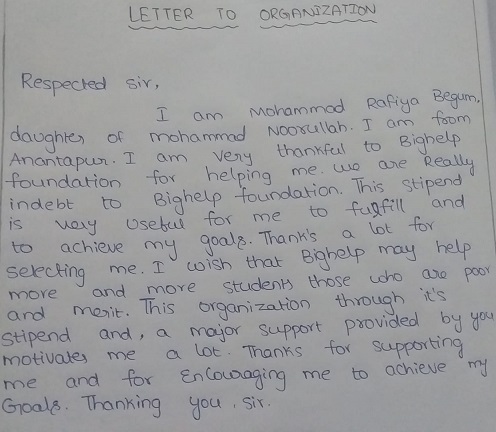 LETTER TO ORGANIZATION
Respected sir,
I am Mohammad Rafiya Begum,
daughter of mohammad Noorullah. I am from
Anantapur. I am very thankful to Bighelp
foundation for helping me. we are Really
indebt to Bighelp foundation. This stipend
is very useful for me to fulfill and
to achieve my goals. Thank's a lot for
selecting me. I wish that Bighelp may help
more and more students those who are poor
and merit. This organization through it's
stipend and, a major support provided by you
motivates me a lot. Thanks for supporting
me and for Encouraging me to achieve my
Goals. Thanking you, sir.